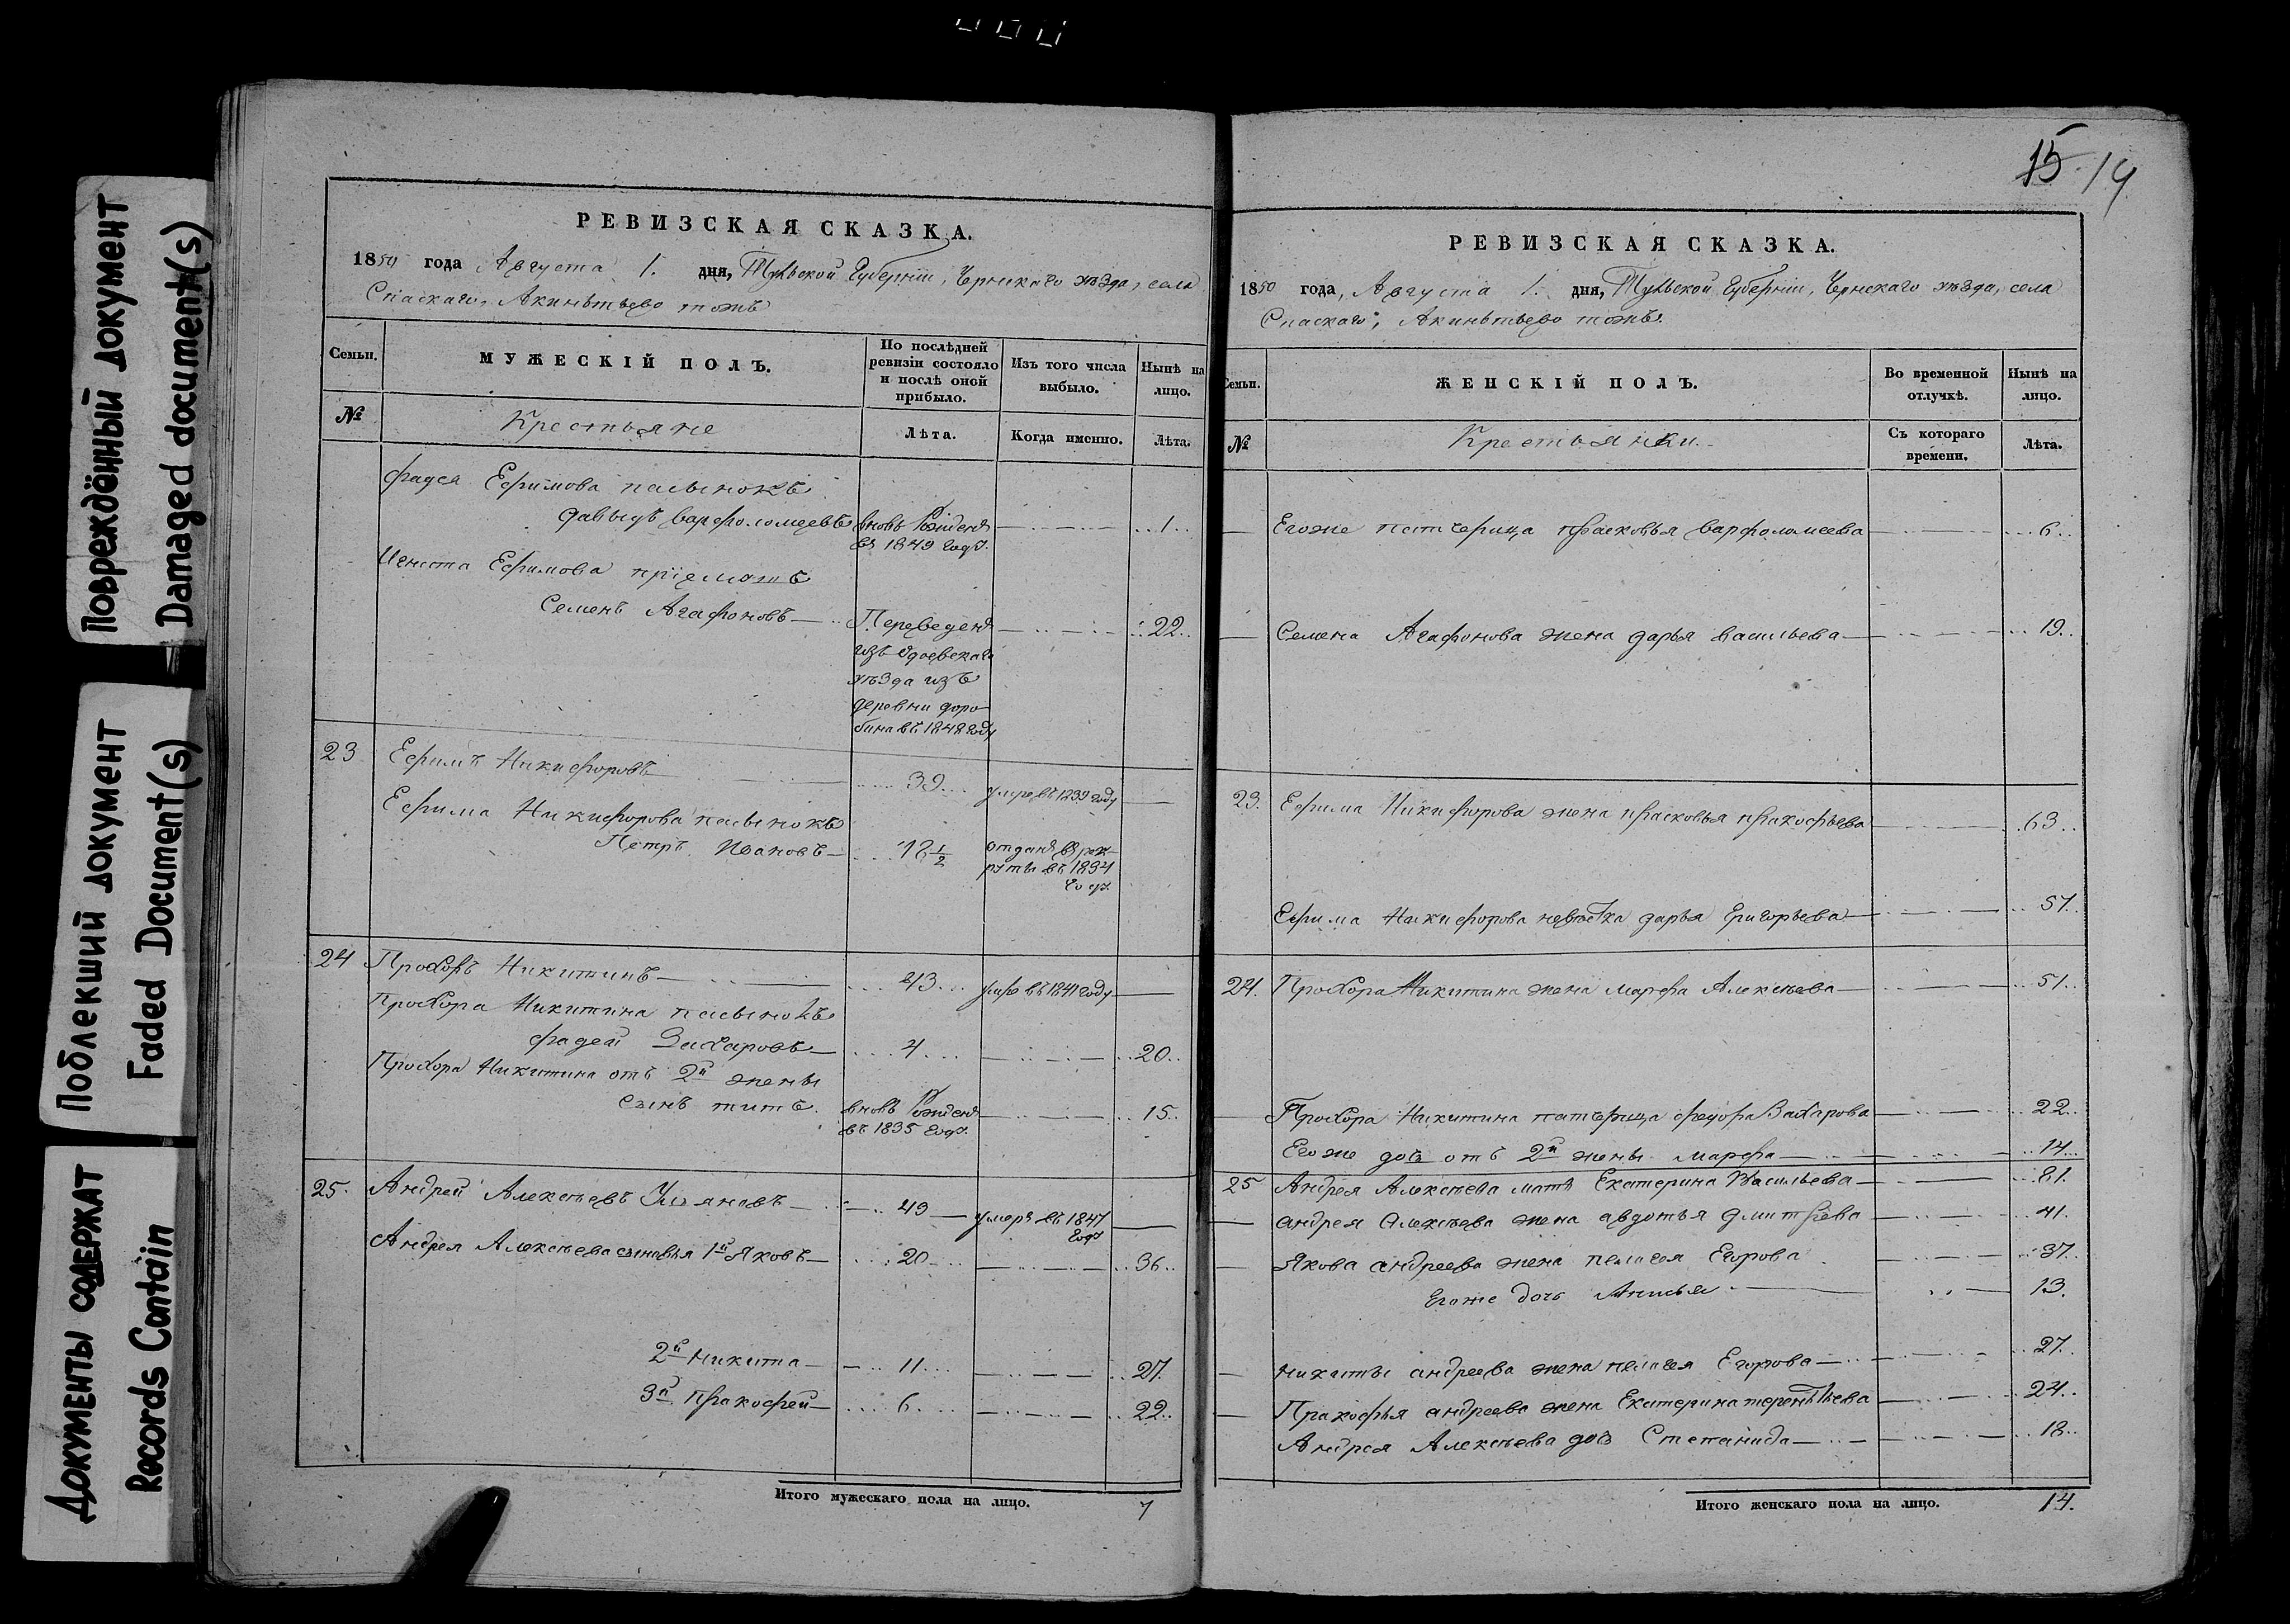 Повреждённый документ
Damaged document(s)
Поблекший документ
Faded Document(s)
Документы содержат
Records Contain
РЕВИЗСКАЯ СКАЗКА.
1850 года Августа 1. дня, Тульской Губерніи, Чернскаго уѣзда, села
Спаскаго, Акиньтьево тожъ
Семьи.
МУЖЕСКІЙ ПОЛЪ.
По послѣдней ревизіи состояло и послѣ оной прибыло.
Изъ того числа выбыло.
Нынѣ на лицо.
№
Крестьяне
Лѣта.
Когда именно.
Лѣта.
Фадея Ефимова пасынокъ
Давыдъ Варфоломеевъ вновь Рожденъ 1
въ 1849 году.
Ефимова пріемышъ
Семенъ Агафоновъ Переведенъ 22
изъ Одоевскаго
уѣзда изъ
деревни Доро-
бина въ 1848 году
23 Ефимъ Никифоровъ 39 умре въ 1839 году
Ефима Никифорова пасынокъ
Петръ Ивановъ 18½ отданъ в рек-
руты въ 1834
году.
24 Прохоръ Никитинъ 43 умре въ 1841 году
Прохора Никитина пасынокъ
Фадей Захаровъ 4 20
Прохора Никитина отъ 2й жены
сынъ титъ. вновь Рожденъ 15
въ 1835 году.
25. Андрей Алексѣевъ 49 умеръ въ 1847
году
Андрея Алексѣева сыновья 1й Яковъ 20 36
2й Никита 11 27
3й Пракофей 6 22
Итого мужескаго пола на лицо. 7
15. 14
РЕВИЗСКАЯ СКАЗКА.
1850 года, Августа 1. дня, Тульской Губерніи, Чернскаго уѣзда, села
Спаскаго, Акиньтьево тожъ.
Семьи.
ЖЕНСКІЙ ПОЛЪ.
Во временной отлучкѣ.
Нынѣ на лицо.
№
Крестьянки.
Съ котораго времени.
Лѣта.
Егоже патчерица Прасковья Варфоломеева 6
Семена Агафонова жена Дарья Васильева 19
23. Ефима Никифорова жена Прасковья Пракофьева 63
Ефима Никифорова невѣстка Дарья Григорьева 51
24. Прохора Никитина жена Марфа Алексѣева 51
Прохора Никитина патчерица Федора Захарова 22
Егоже дочь отъ 2й жены Марфа 14
25 Андрея Алексѣева мать Екатерина Васильева 81
Андрея Алексѣева жена Авдотья Дмитрѣева 41
Якова Андреева жена Пелагея Егорова 37
Егоже дочь Анисья 13.
Никиты Андреева жена Пелагея Егорова 27
Пракофья Андреева жена Екатерина Терентьева 24
Андрея Алексѣева дочь Степанида 18
Итого женскаго пола на лицо. 14.